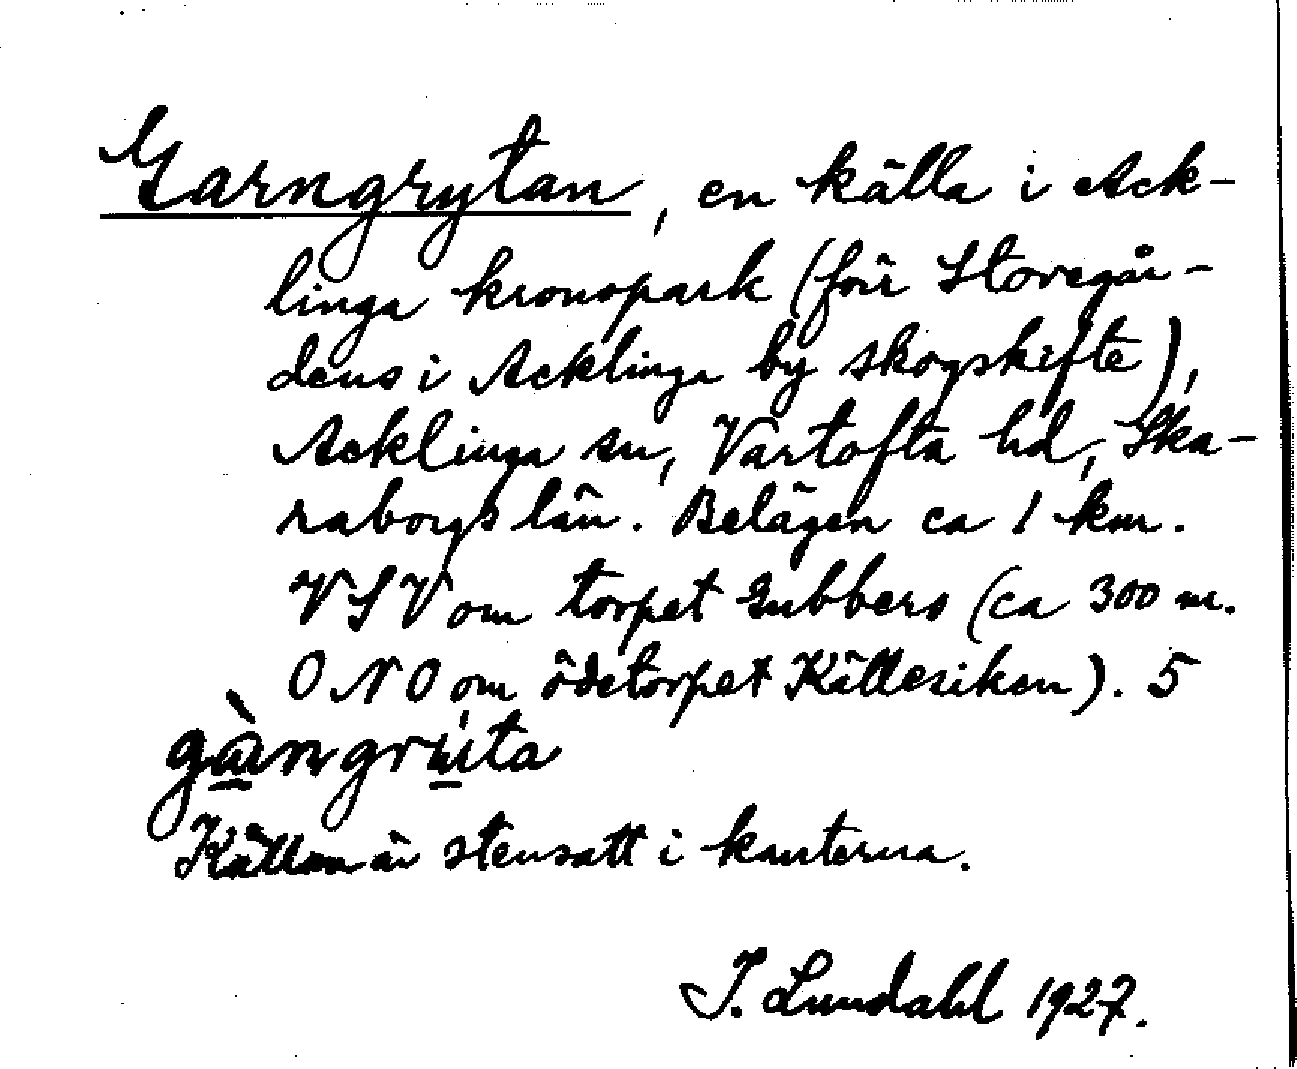 Garngrytan, en källa i Ack-
linga kronopark (förr Storegår-
dens i Acklinga by skogskifte),
Acklinga sn, Vartofta hd, Ska-
raborgs län. Belägen ca 1 km.
VSV om torpet Gubbero (ca 300 m.
ONO om ödetorpet Källesiken). 5
Källan är stensatt i kanterna.
I. Lundahl 1927.